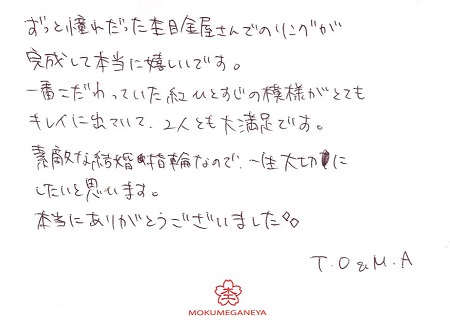 ずっと憧れだった杢目金屋さんでのリングが
完成して本当に嬉しいです。
一番こだわっていた紅ひとすじの模様がとても
キレイに出ていて、2人とも大満足です。
素敵な結婚指輪なので、一生大切に
したいと思います。
本当にありがとうございました
T.O & M.A
杢
MOKUMEGANEYA